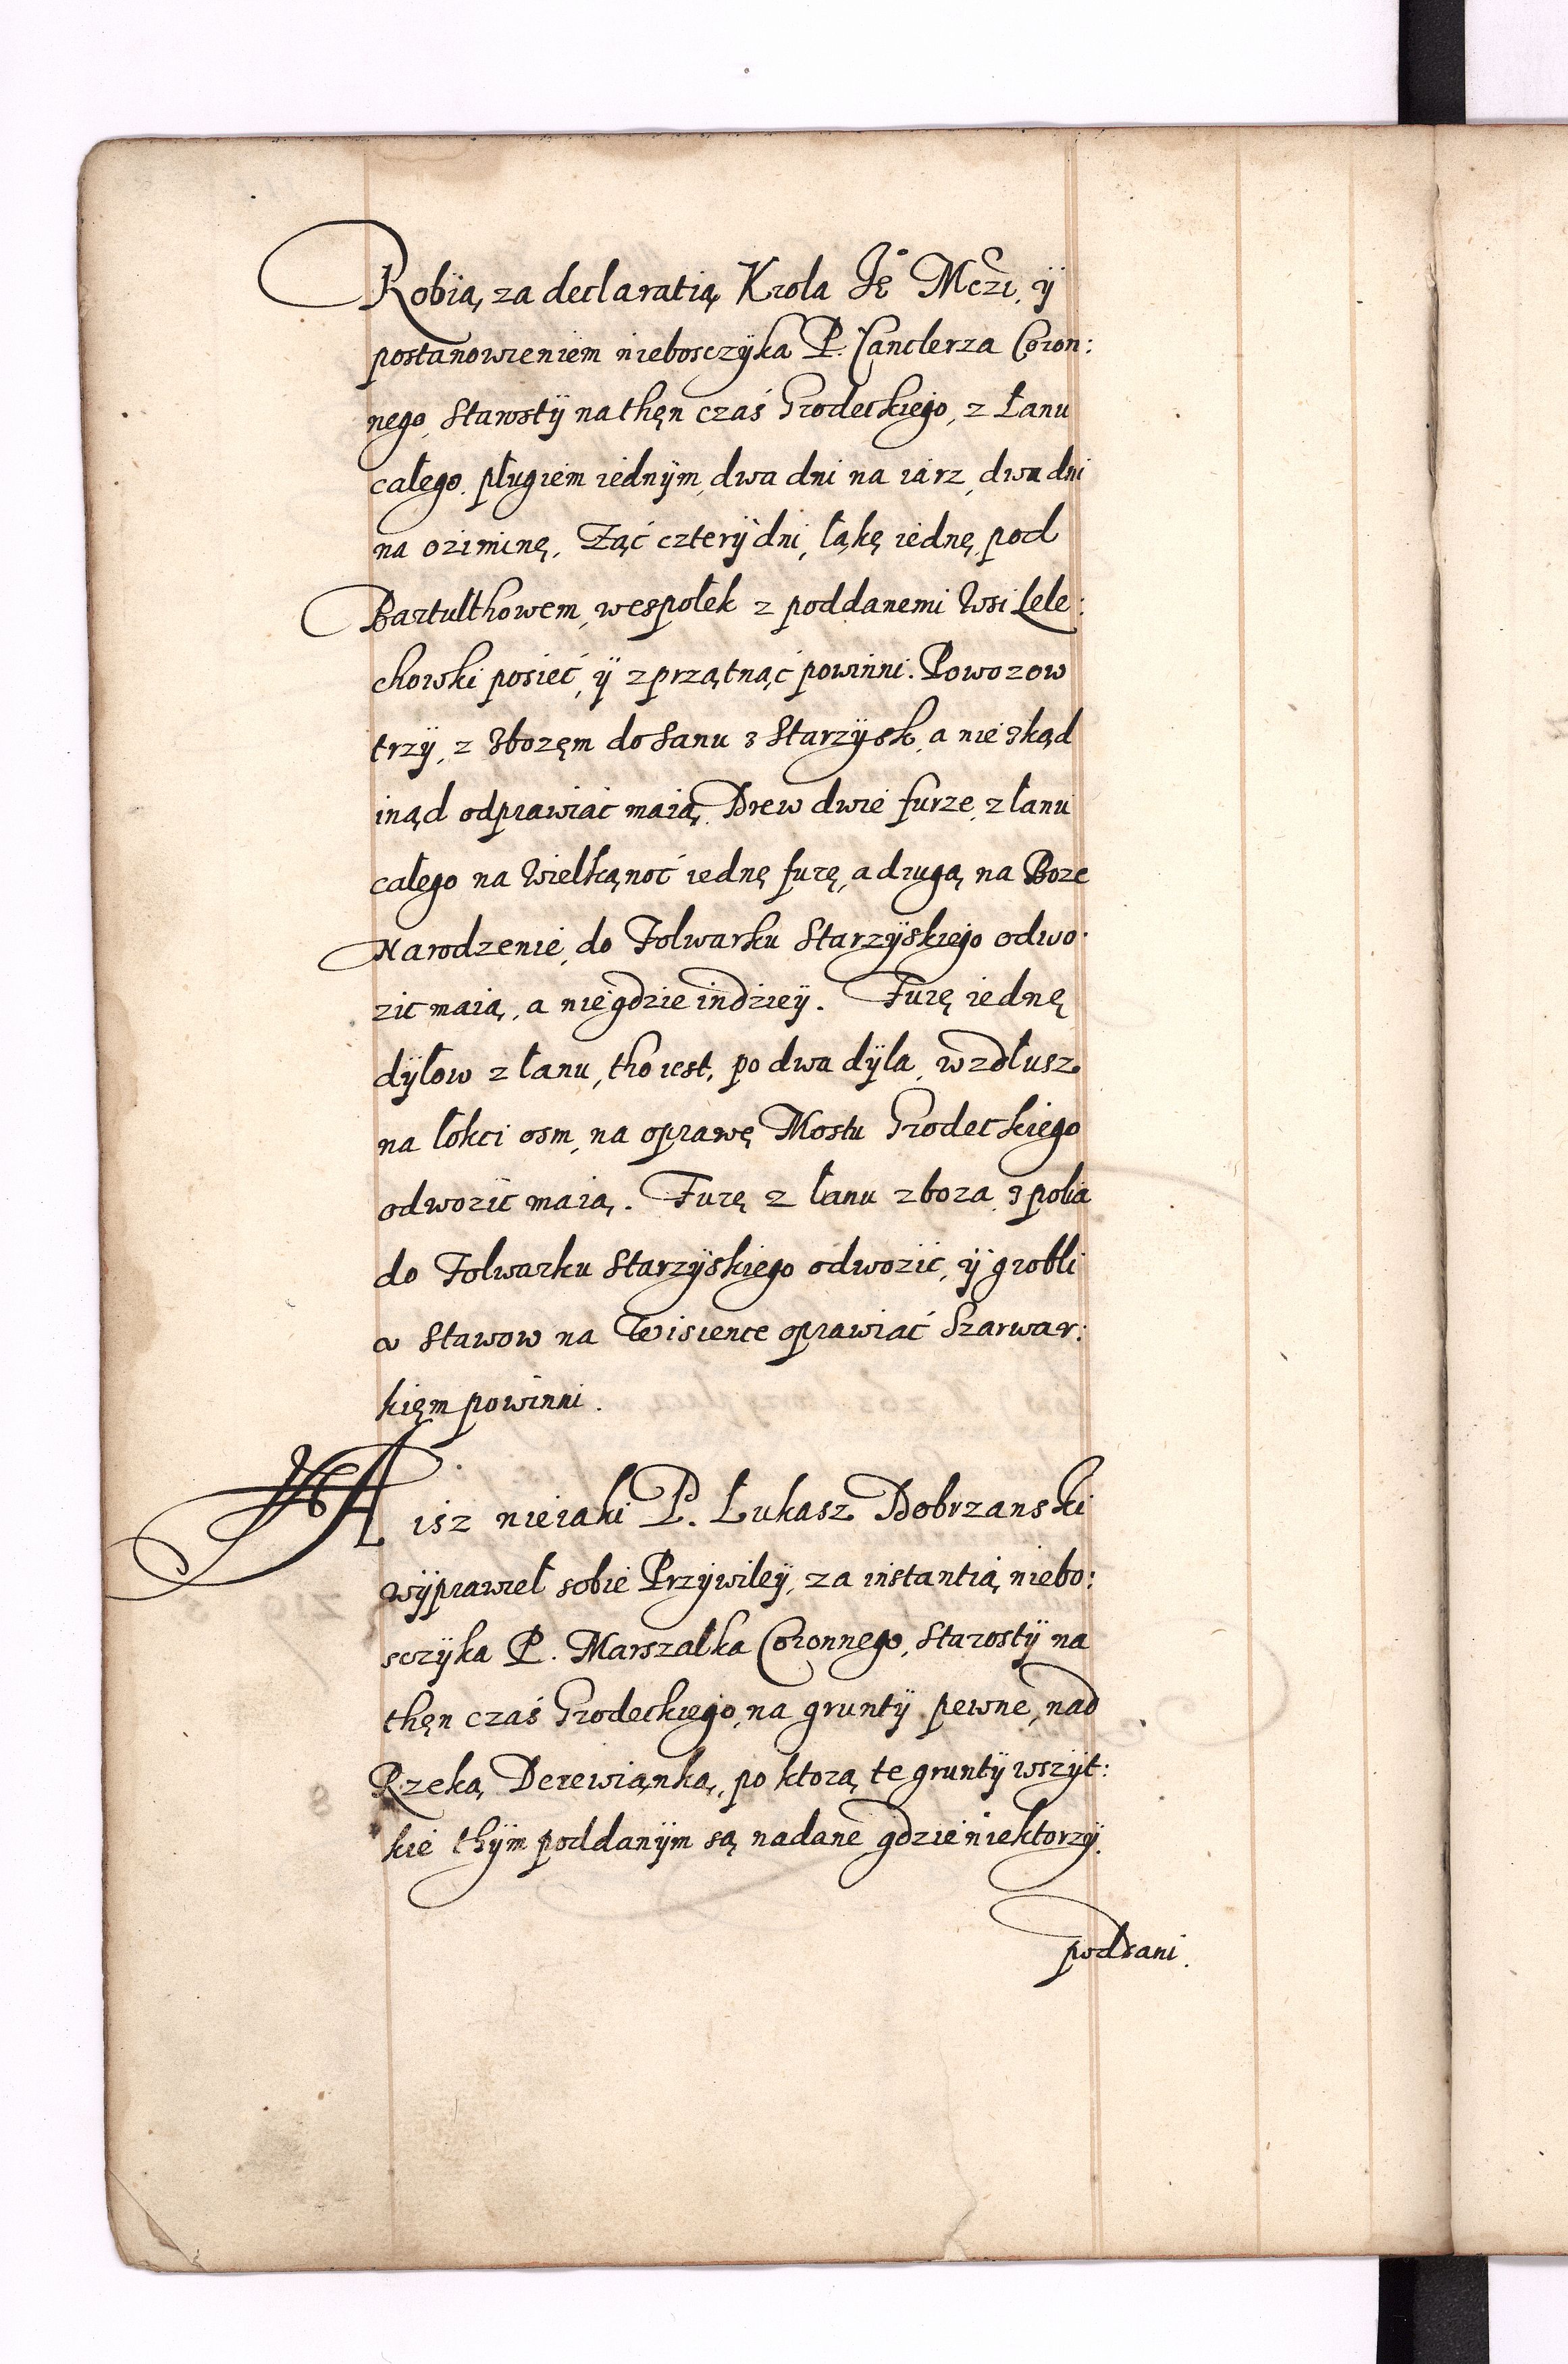 Robią, za declaratią Krola Jė Mczi, ÿ
postanowieniem niebosczÿka P. Canclerza Coron:
nego, Starostÿ na thęn czaś Grodeckiego, z Łanu
całego pługiem iednÿm, dwa dni na iarz, dwa dni
na oziminę, Ząć czterÿ dni, łąkę iednę, pod
Bartulthowem, wespołek z poddanemi Wsi Lele:
chowki posieć, ÿ zprzątnąć powinni. Powozow
trzÿ, z Zbozęm do Sanu z Starzÿsk, a nie zkąd
inąd odprawiać maią. Drew dwie furze, z łanu
całego na Wielkąnoc iednę furę, a drugą na Boze
Narodzenie, do Folwarku Starzÿskiego odwo:
zic maią, a niegdzieindzieÿ. Furę iednę
dÿlow z łanu, tho iest, po dwa dÿla, wzdłusz
na łokci osm, na oprawę Mostu Grodeckiego
odwozic maią. Furę z łanu zboza z pola
do Folwarku Starzÿskiego odwozic, ÿ grobli
w Stawow na Wisience oprawiać Szarwar:
kięm powinni.
A isz nieiaki P. Łukasz Dobrzanski
wÿprawieł sobie Przÿwileÿ, za instantią niebo:
sczÿka P. Marszałka Coronnego, Starostÿ na
thęn czaś Grodeckiego, na gruntÿ pewne, nad
Rzeką Derewianką, po ktorą te gruntÿ wszÿt:
kie thÿm poddanÿm są nadane gdzie niektorzÿ
poddani.